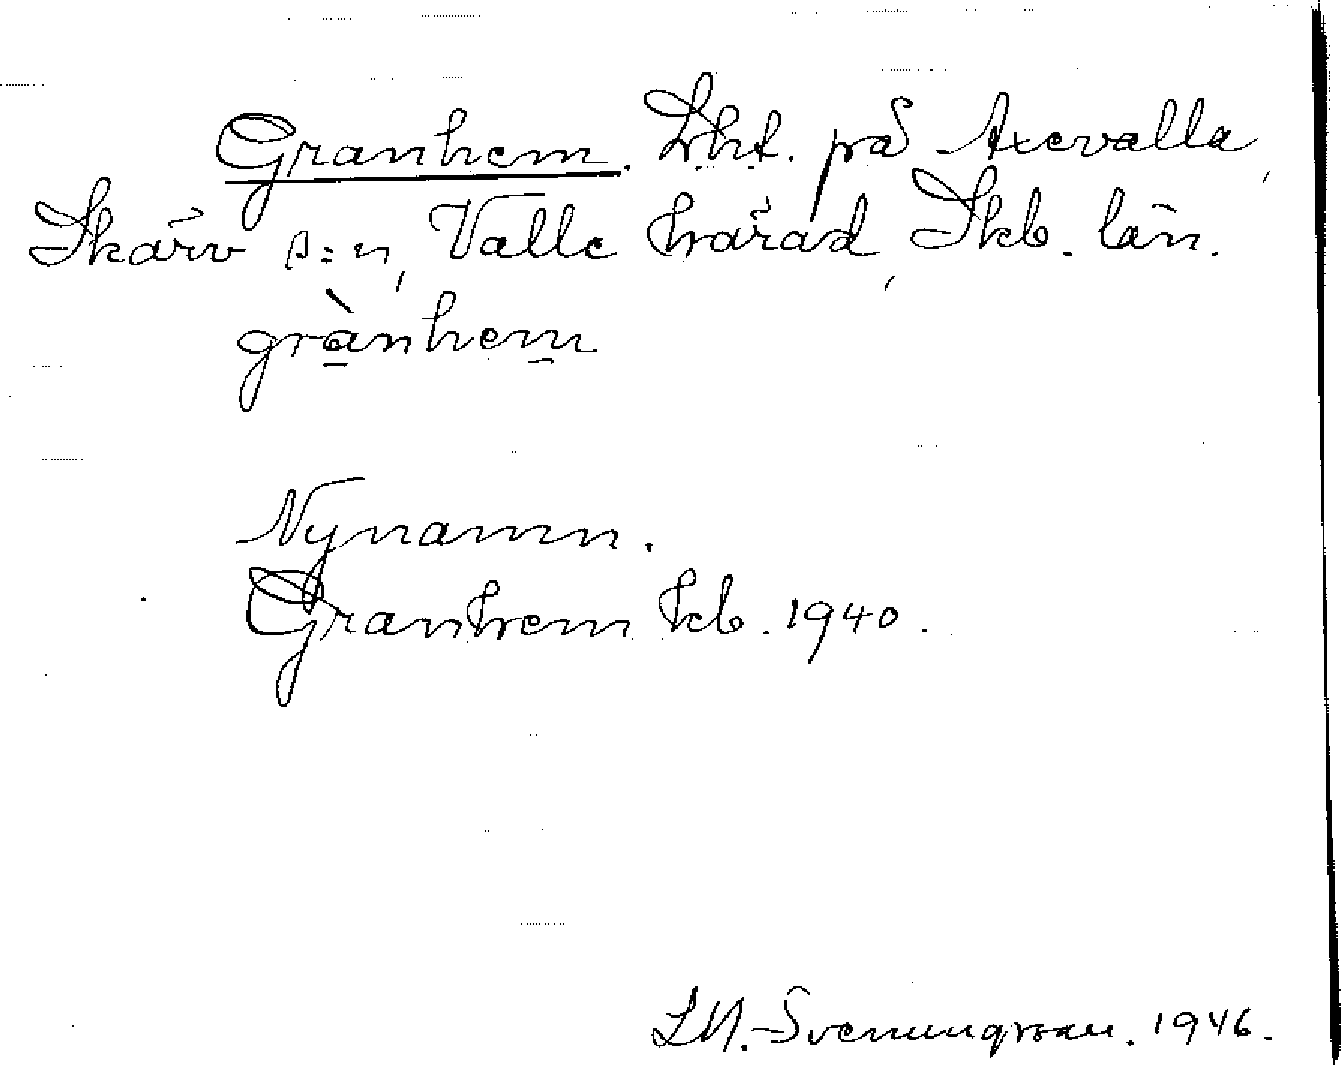 Granhem. Lht. på Axevalla,
Skärv s:n, Valle härad, Skb. län.
grànhem
Nynamn.
Granhem kb. 1940.
Svenungsson. 1946.